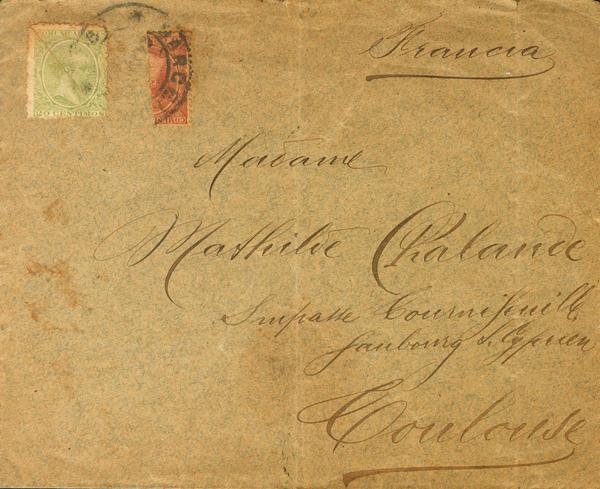 Francia
20 CENTIMOS
BARCEL
Madame
Mathilde Chalande
Impasse Tournefeuille
faubourg St Cyprien
Toulouse